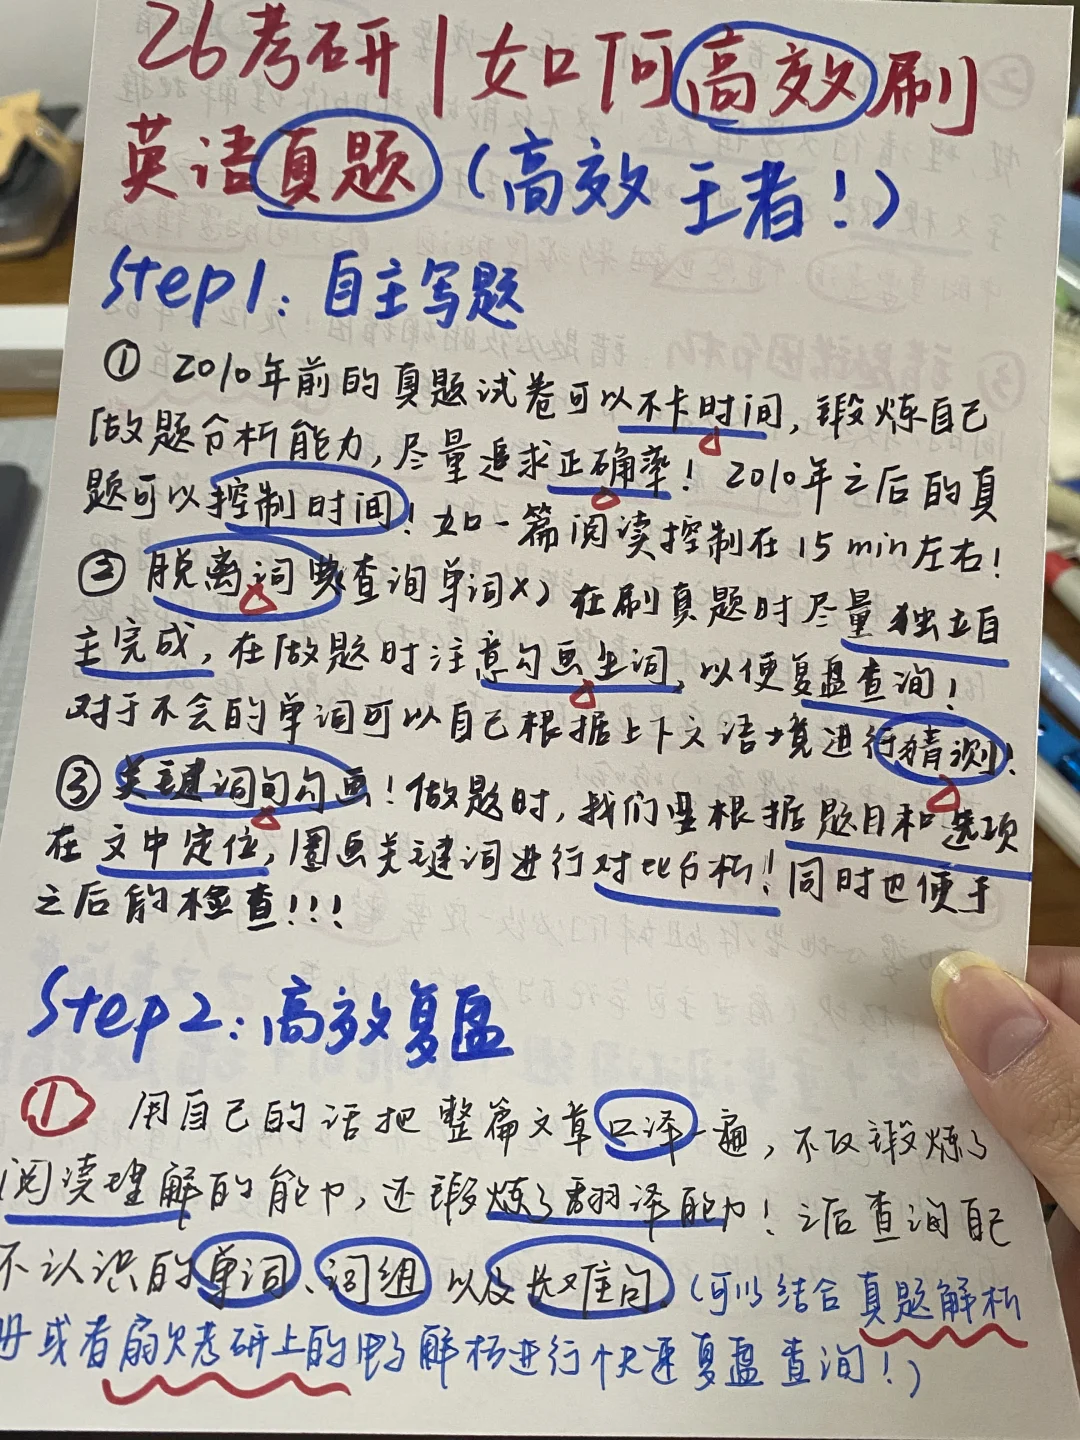 26考研|如何高效刷
英语真题(高效王者!)
Step1:自主写题
① 2010年前的真题试卷可以不卡时间,锻炼自己
做题分析能力,尽量追求正确率!2010年之后的真
题可以控制时间!如一篇阅读控制在15min左右!
② 脱离词典查询单词x)在刷真题时尽量独立自
主完成,在做题时注意勾画生词,以便复盘查询!
对于不会的单词可以自己根据上下文语境进行猜测!
③ 关键词句勾画!做题时,我们要根据题目和选项
在文中定位,圈画关键词进行对比分析!同时也便于
之后的检查!!!
Step2:高效复盘
① 用自己的话把整篇文章口译一遍,不仅锻炼了
阅读理解的能力,还锻炼了翻译能力!之后查询自己
不认识的单词、词组以及长难句.(可以结合真题解析
册或者扇贝考研上的电子解析进行快速复盘查询!)